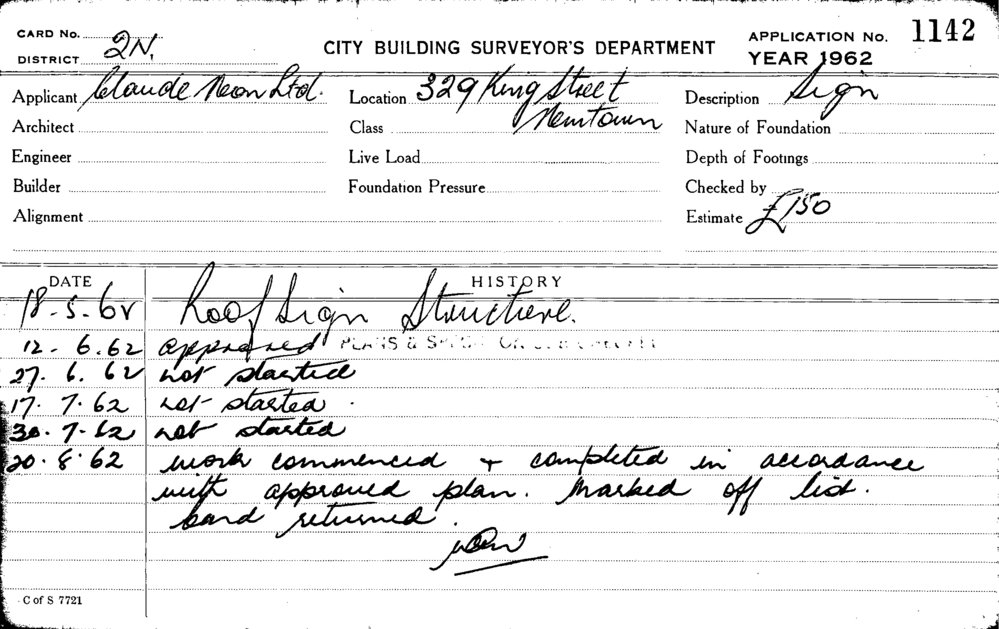 CARD No.
DISTRICT 2N.
CITY BUILDING SURVEYOR'S DEPARTMENT
APPLICATION No. 1142
YEAR 1962
Applicant Claude Neon Ltd. Location 329 King Street Description Sign
Architect Class Newtown Nature of Foundation
Engineer Live Load Depth of Footings
Builder Foundation Pressure Checked by
Alignment Estimate £150
DATE HISTORY
18-5-62 Roof Sign Structure.
12-6.62 approved PLANS &
27.6.62 not started
17.7.62 not started
30.7.62 not started
20.8.62 work commenced + completed in accordance
with approved plan. Marked off list.
Card returned.
C of S 7721